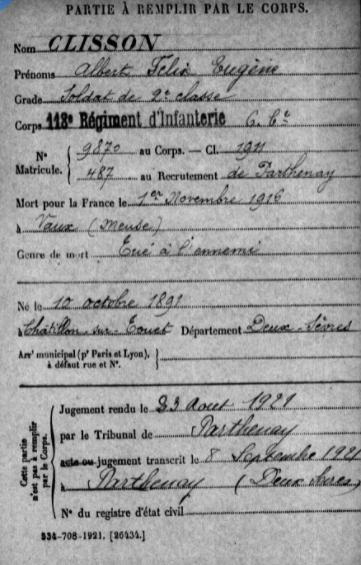 PARTIE À REMPLIR PAR LE CORPS.
Nom CLISSON
Prénoms Albert Félix Eugène
Grade Soldat de 2e classe
Corps 118e Régiment d'Infanterie 6. Cie
N° Matricule. { 9870 au Corps. — Cl. 1911
487 au Recrutement de Parthenay
Mort pour la France le 1er Novembre 1916
à Vaux (Meuse)
Genre de mort Tué à l'ennemi
Né le 10 octobre 1891
à Châtillon-sur-Thouet Département Deux-Sèvres
Arrt municipal (pr Paris et Lyon), à défaut rue et N°. {
Cette partie n'est pas à remplir par le Corps. {
Jugement rendu le 23 Août 1921
par le Tribunal de Parthenay
acte ou jugement transcrit le 8 Septembre 1921
à Parthenay (Deux Sèvres)
N° du registre d'état civil
534-708-1921. [26434.]